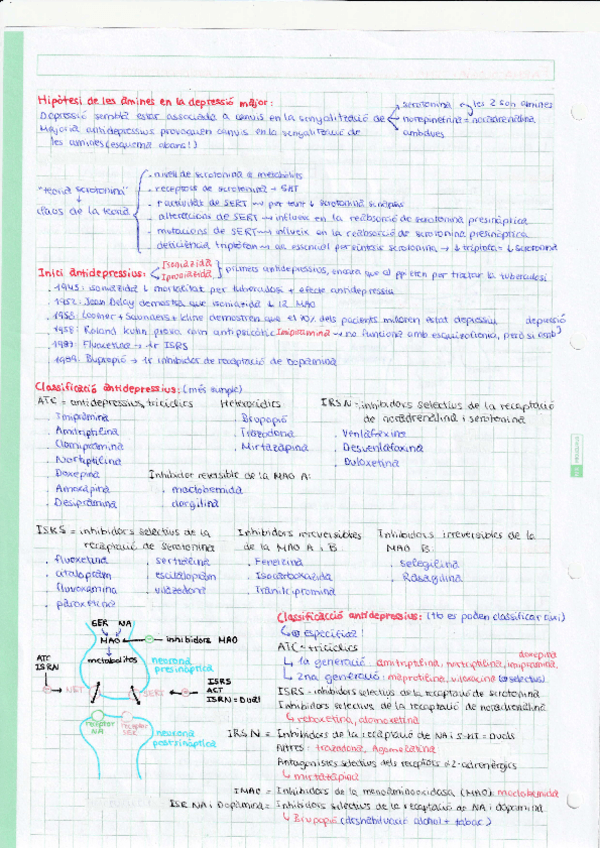 Hipòtesi de les amines en la depressió major:
Depressió sembla estar associada a canvis en la senyalització de
serotonina les 2 són amines
norepinefrina = noradrenalina
ambdues
Majoria antidepressius provoquen canvis en la senyalització de
les amines (esquema abans!)
"teoria serotonina"
claus de la teoria
. nivells de serotonina o metabòlits
. receptors de serotonina → SHT
. activitat de SERT per tant ↓ serotonina sinapsis
. alteracions de SERT → influeix en la reabsorció de serotonina presinàptica
. mutacions de SERT influeix en la reabsorció de serotonina presinàptica
. deficiència triptòfan aa essencial per síntesis serotonina → ↓ triptòfan = ↓ serotonina
Inici antidepressius: Isoniazida
Iproniazida
primers antidepressius, encara que al pp eren per tractar la tuberculosi
. 1945: isoniazida ↓ mortalitat per tuberculosi + efecte antidepressiu
. 1952: Jean Delay demostra que isoniazida ↓ la MAO
. 1953: Loomer + Saunders + Kline demostren que el 70% dels pacients milloren estat depressiu
. 1958: Roland Kuhn prova com antipsicòtic Imipramina → no funciona amb esquizofrènia, però si amb depressió
. 1987: Fluoxetina → 1r ISRS
. 1989: Bupropió → 1r inhibidor de recaptació de Dopamina
Classificació antidepressius: (més simple)
ATC = antidepressius tricíclics
. Imipramina
. Amitriptilina
. Clomipramina
. Nortriptilina
. Doxepina
. Amoxapina
. Desipramina
Heterocíclics
. Bupropió
. Trazodona
. Mirtazapina
IRSN = inhibidors selectius de la recaptació
de noradrenalina i serotonina
. Venlafaxina
. Desvenlafaxina
. Duloxetina
Inhibidor reversible de la MAO A:
. moclobemida
. clorgilina
ISRS = inhibidors selectius de la
recaptació de serotonina
. fluoxetina . sertralina
. citalopram . escitalopram
. fluvoxamina . vilazodona
. paroxetina
Inhibidors irreversibles
de la MAO A i B
. Fenelzina
. Isocarboxazida
. Tranilcipromina
Inhibidors irreversibles de la
MAO B:
. selegilina
. Rasagilina
SER NA
MAO ← inhibidors MAO
metabòlits
neurona
presinàptica
ATC
ISRN
NET SERT
ISRS
ACT
ISRN = Dual
receptor
NA
receptor
SER
neurona
postsinàptica
Classificació antidepressius: (No es poden classificar així)
↳ específica!
ATC = tricíclics
↳ 1a generació: amitriptilina, nortriptilina, imipramina, doxepina
↳ 2na generació: maprotilina, viloxacina (selectius)
ISRS = inhibidors selectius de la recaptació de serotonina
Inhibidors selectius de la recaptació de noradrenalina
↳ reboxetina, atomoxetina
IRSN = Inhibidors de la recaptació de NA i 5-HT = Duals
Altres: trazodona, Agomelatina
Antagonistes selectius dels receptors α2-adrenèrgics
↳ mirtazapina
IMAO = Inhibidors de la monoaminooxidasa (MAO): moclobemida
ISR NA i Dopamina = Inhibidors selectius de la recaptació de NA i dopamina
↳ Bupropió (deshabituació alcohol + tabac)